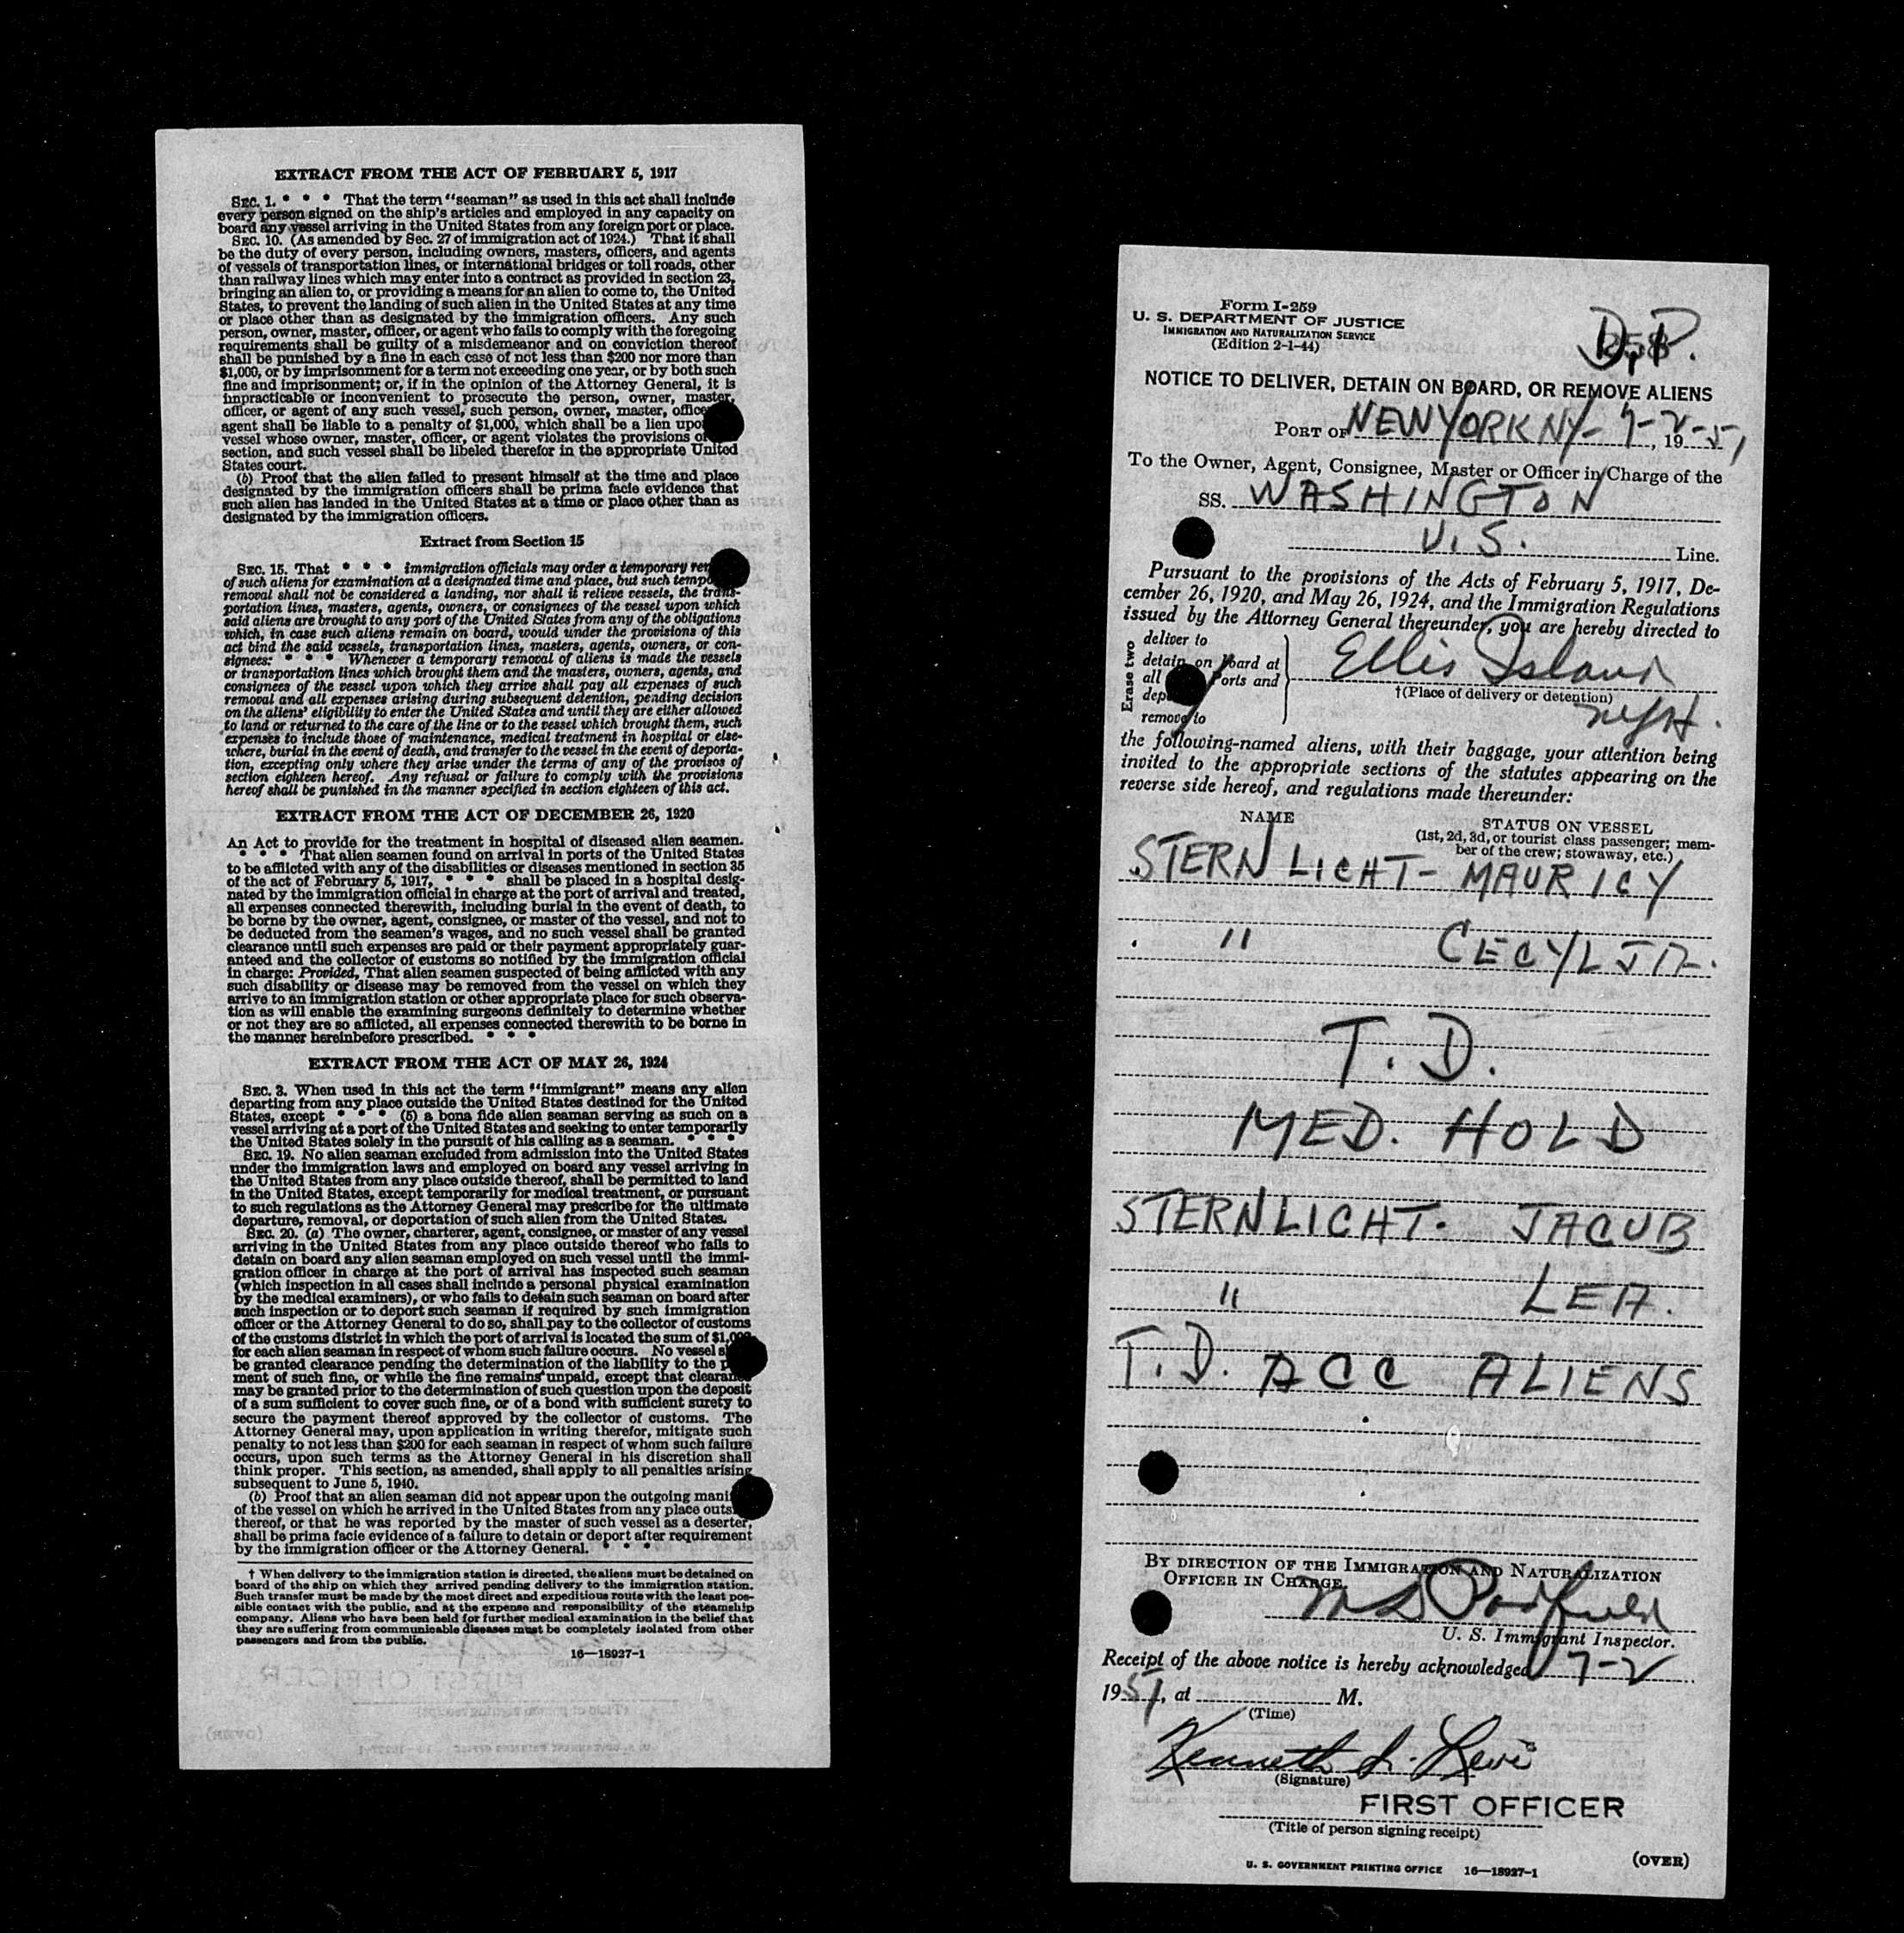 EXTRACT FROM THE ACT OF FEBRUARY 5, 1917
SEC. 1. * * * That the term "seaman" as used in this act shall include
every person signed on the ship's articles and employed in any capacity on
board any vessel arriving in the United States from any foreign port or place.
SEC. 10. (As amended by Sec. 27 of immigration act of 1924.) That it shall
be the duty of every person, including owners, masters, officers, and agents
of vessels of transportation lines, or international bridges or toll roads, other
than railway lines which may enter into a contract as provided in section 23,
bringing an alien to, or providing a means for an alien to come to, the United
States, to prevent the landing of such alien in the United States at any time
or place other than as designated by the immigration officers. Any such
person, owner, master, officer, or agent who fails to comply with the foregoing
requirements shall be guilty of a misdemeanor and on conviction thereof
shall be punished by a fine in each case of not less than $200 nor more than
$1,000, or by imprisonment for a term not exceeding one year, or by both such
fine and imprisonment; or, if in the opinion of the Attorney General, it is
impracticable or inconvenient to prosecute the person, owner, master,
officer, or agent of any such vessel, such person, owner, master, office
agent shall be liable to a penalty of $1,000, which shall be a lien upo
vessel whose owner, master, officer, or agent violates the provisions o
section, and such vessel shall be libeled therefor in the appropriate United
States court.
(b) Proof that the alien failed to present himself at the time and place
designated by the immigration officers shall be prima facie evidence that
such alien has landed in the United States at a time or place other than as
designated by the immigration officers.
Extract from Section 15
SEC. 15. That * * * immigration officials may order a temporary rem
of such aliens for examination at a designated time and place, but such tempo
removal shall not be considered a landing, nor shall it relieve vessels, the trans-
portation lines, masters, agents, owners, or consignees of the vessel upon which
said aliens are brought to any port of the United States from any of the obligations
which, in case such aliens remain on board, would under the provisions of this
act bind the said vessels, transportation lines, masters, agents, owners, or con-
signees: * * * Whenever a temporary removal of aliens is made the vessels
or transportation lines which brought them and the masters, owners, agents, and
consignees of the vessel upon which they arrive shall pay all expenses of such
removal and all expenses arising during subsequent detention, pending decision
on the aliens' eligibility to enter the United States and until they are either allowed
to land or returned to the care of the line or to the vessel which brought them, such
expenses to include those of maintenance, medical treatment in hospital or else-
where, burial in the event of death, and transfer to the vessel in the event of deporta-
tion, excepting only where they arise under the terms of any of the provisos of
section eighteen hereof. Any refusal or failure to comply with the provisions
hereof shall be punished in the manner specified in section eighteen of this act.
EXTRACT FROM THE ACT OF DECEMBER 26, 1920
An Act to provide for the treatment in hospital of diseased alien seamen.
* * * That alien seamen found on arrival in ports of the United States
to be afflicted with any of the disabilities or diseases mentioned in section 35
of the act of February 5, 1917, * * * shall be placed in a hospital desig-
nated by the immigration official in charge at the port of arrival and treated,
all expenses connected therewith, including burial in the event of death, to
be borne by the owner, agent, consignee, or master of the vessel, and not to
be deducted from the seamen's wages, and no such vessel shall be granted
clearance until such expenses are paid or their payment appropriately guar-
anteed and the collector of customs so notified by the immigration official
in charge: Provided, That alien seamen suspected of being afflicted with any
such disability or disease may be removed from the vessel on which they
arrive to an immigration station or other appropriate place for such observa-
tion as will enable the examining surgeons definitely to determine whether
or not they are so afflicted, all expenses connected therewith to be borne in
the manner hereinbefore prescribed. * * *
EXTRACT FROM THE ACT OF MAY 26, 1924
SEC. 3. When used in this act the term "immigrant" means any alien
departing from any place outside the United States destined for the United
States, except * * * (5) a bona fide alien seaman serving as such on a
vessel arriving at a port of the United States and seeking to enter temporarily
the United States solely in the pursuit of his calling as a seaman. * * *
SEC. 19. No alien seaman excluded from admission into the United States
under the immigration laws and employed on board any vessel arriving in
the United States from any place outside thereof, shall be permitted to land
in the United States, except temporarily for medical treatment, or pursuant
to such regulations as the Attorney General may prescribe for the ultimate
departure, removal, or deportation of such alien from the United States.
SEC. 20. (a) The owner, charterer, agent, consignee, or master of any vessel
arriving in the United States from any place outside thereof who fails to
detain on board any alien seaman employed on such vessel until the immi-
gration officer in charge at the port of arrival has inspected such seaman
(which inspection in all cases shall include a personal physical examination
by the medical examiners), or who fails to detain such seaman on board after
such inspection or to deport such seaman if required by such immigration
officer or the Attorney General to do so, shall pay to the collector of customs
of the customs district in which the port of arrival is located the sum of $1,000
for each alien seaman in respect of whom such failure occurs. No vessel s
be granted clearance pending the determination of the liability to the p
ment of such fine, or while the fine remains unpaid, except that clearance
may be granted prior to the determination of such question upon the deposit
of a sum sufficient to cover such fine, or of a bond with sufficient surety to
secure the payment thereof approved by the collector of customs. The
Attorney General may, upon application in writing therefor, mitigate such
penalty to not less than $200 for each seaman in respect of whom such failure
occurs, upon such terms as the Attorney General in his discretion shall
think proper. This section, as amended, shall apply to all penalties arising
subsequent to June 5, 1940.
(b) Proof that an alien seaman did not appear upon the outgoing mani
of the vessel on which he arrived in the United States from any place outs
thereof, or that he was reported by the master of such vessel as a deserter,
shall be prima facie evidence of a failure to detain or deport after requirement
by the immigration officer or the Attorney General. * * *
† When delivery to the immigration station is directed, the aliens must be detained on
board of the ship on which they arrived pending delivery to the immigration station.
Such transfer must be made by the most direct and expeditious route with the least pos-
sible contact with the public, and at the expense and responsibility of the steamship
company. Aliens who have been held for further medical examination in the belief that
they are suffering from communicable diseases must be completely isolated from other
passengers and from the public.
16—18927-1
Form I-259
U. S. DEPARTMENT OF JUSTICE
IMMIGRATION AND NATURALIZATION SERVICE
(Edition 2-1-44)
D.P.
258
NOTICE TO DELIVER, DETAIN ON BOARD, OR REMOVE ALIENS
PORT OF NEW YORK NY- 7-2-, 19 51
To the Owner, Agent, Consignee, Master or Officer in Charge of the
SS. WASHINGTON
U.S. Line.
Pursuant to the provisions of the Acts of February 5, 1917, De-
cember 26, 1920, and May 26, 1924, and the Immigration Regulations
issued by the Attorney General thereunder, you are hereby directed to
Erase two
deliver to
detain on board at
all Ports and
dep
remove to
Ellis Island
†(Place of delivery or detention)
NYH.
the following-named aliens, with their baggage, your attention being
invited to the appropriate sections of the statutes appearing on the
reverse side hereof, and regulations made thereunder:
NAME STATUS ON VESSEL
(1st, 2d, 3d, or tourist class passenger; mem-
ber of the crew; stowaway, etc.)
STERNLICHT- MAURICY
" CECYLJA.
T. D.
MED. HOLD
STERNLICHT. JACUB
" LEA.
T.D. ACC ALIENS
BY DIRECTION OF THE IMMIGRATION AND NATURALIZATION
OFFICER IN CHARGE
U. S. Immigrant Inspector.
Receipt of the above notice is hereby acknowledged 7-2
1951, at M.
(Time)
Kenneth L. Levi
(Signature)
FIRST OFFICER
(Title of person signing receipt)
U. S. GOVERNMENT PRINTING OFFICE 16—18927-1
(OVER)